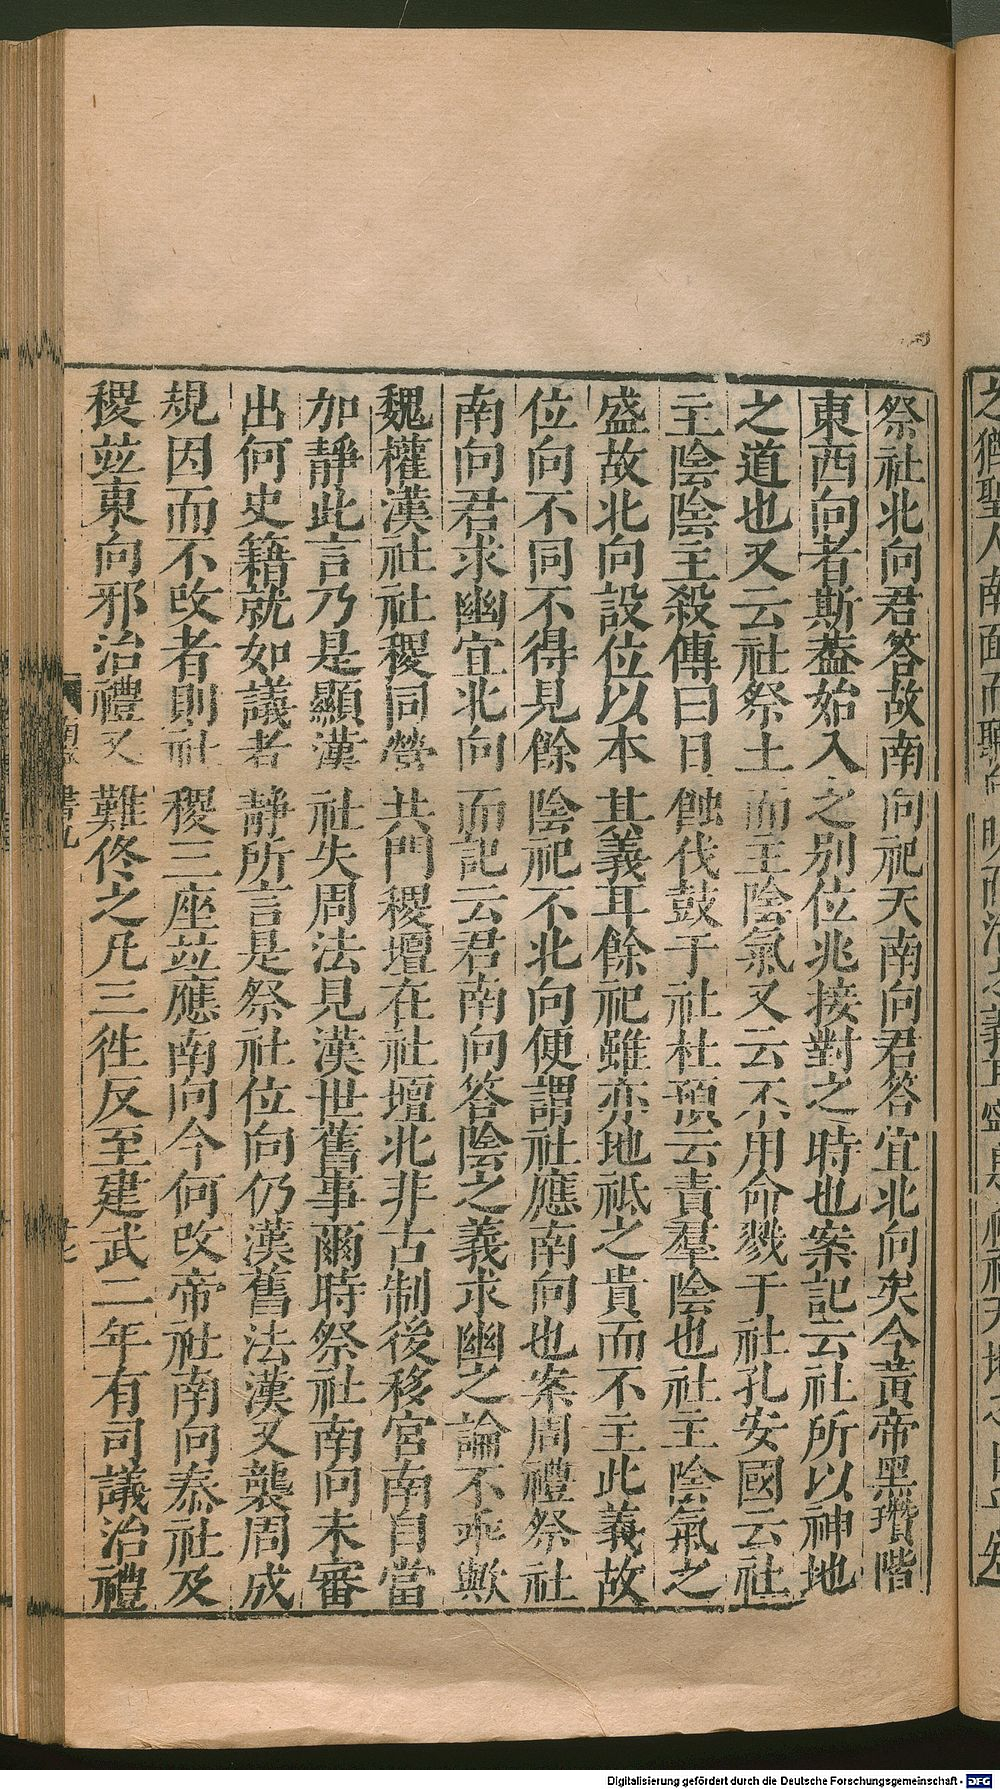 之猶聖人南面而聽向明而治之義耳
祭社北向君答故南向祀天南向君答宜北向矣今黃帝黑瓚階
東西向者斯蓋始入之別位兆接對之時也案記云社所以神地
之道也又云社祭土而主陰氣又云不用命戮于社孔安國云社
主陰陰主殺傳曰日蝕伐鼓于社杜預云責羣陰也社主陰氣之
盛故北向設位以本其義耳餘祀雖亦地祗之貴而不主此義故
位向不同不得見餘陰祀不北向便謂社應南向也案周禮祭社
南向君求幽宜北向而記云君南向答陰之義求幽之論不乖歟
魏權漢社社稷同營共門稷壇在社壇北非古制後移宮南自當
加靜此言乃是顯漢社失周法見漢世舊事爾時祭社南向未審
出何史籍就如議者靜所言是祭社位向仍漢舊法漢又襲周成
規因而不改者則社稷三座竝應南向今何改帝社南向泰社及
稷竝東向邪治禮又難佟之凡三往反至建武二年有司議治禮
Digitalisierung gefördert durch die Deutsche Forschungsgemeinschaft - DFG